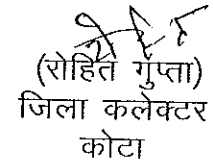 (रोहित गुप्ता)
जिला कलेक्टर
कोटा